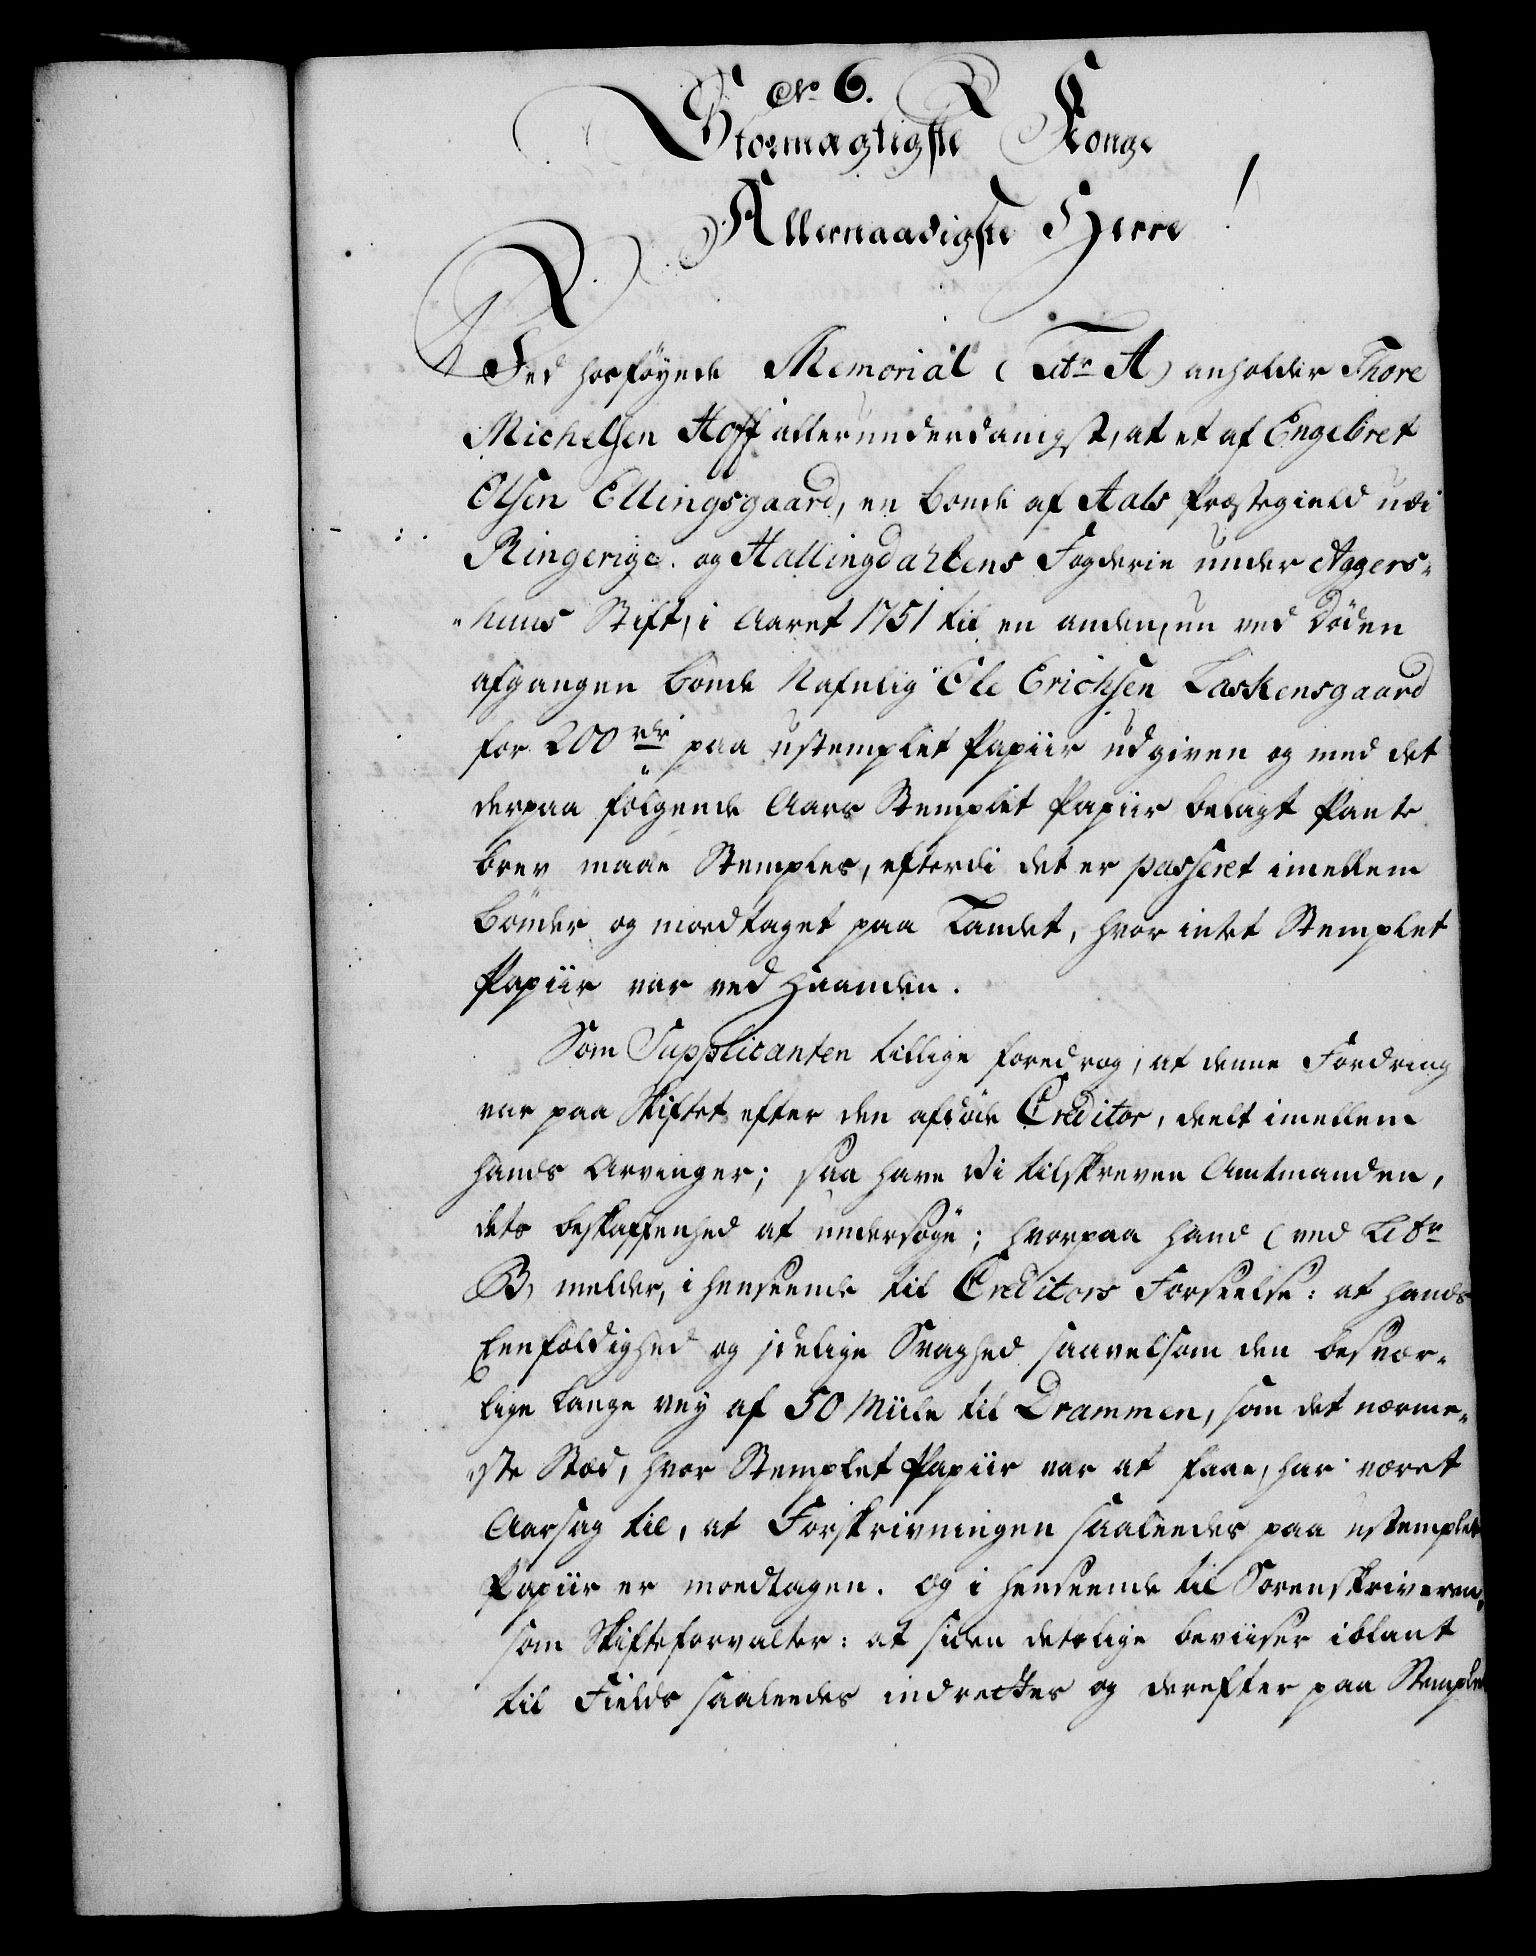 No 6.
Stormægtigste Konge
Allernaadigste Herre!
Ved hosføyede Memorial (Litr A) anholder Thore
Michelsen Hoff allerunderdanigst, at et af Engebret
Olsen Ellingsgaard, en Bonde af Aals Præstegield udi
Ringerige og Hallingdahlens Fogderie under Aggers-
huus Stift, i Aaret 1751 til en anden, nu ved Døden
afgangen Bonde Nafnlig Ole Erichsen Laskensgaard
for 200 rdr paa ustemplet Papiir udgiven og med det
derpaa følgende Aars Stemplet Papiir belagt Pante
brev maae Stemples, efterdi det er passeret imellem
Bönder og modtaget paa Landet, hvor intet Stemplet
Papiir var ved Haanden.
Som Supplicanten tillige foredrog, at denne Fordring
var paa Skiftet efter den afdöde Creditor, deelt imellem
hands Arvinger; saa have Vi tilskreven Amtmanden,
dets beskaffenhed at undersøge; hvorpaa hand (ved Litr
B) melder, i henseende til Creditors Forseelse: at hands
Eenfoldighed og idelige Svaghed saavelsom den besvær-
lige lange vey af 50 Miile til Drammen, som det nærme-
ste Stæd, hvor Stemplet Papiir var at faae, har været
Aarsag til, at Forskrivningen saaledes paa ustemplet
Papiir er modtagen. Og i henseende til Sorenskriveren,
som Skifteforvalter: at siden deslige beviiser iblant
til Fields saaledes indrettes og derefter paa Stemplet